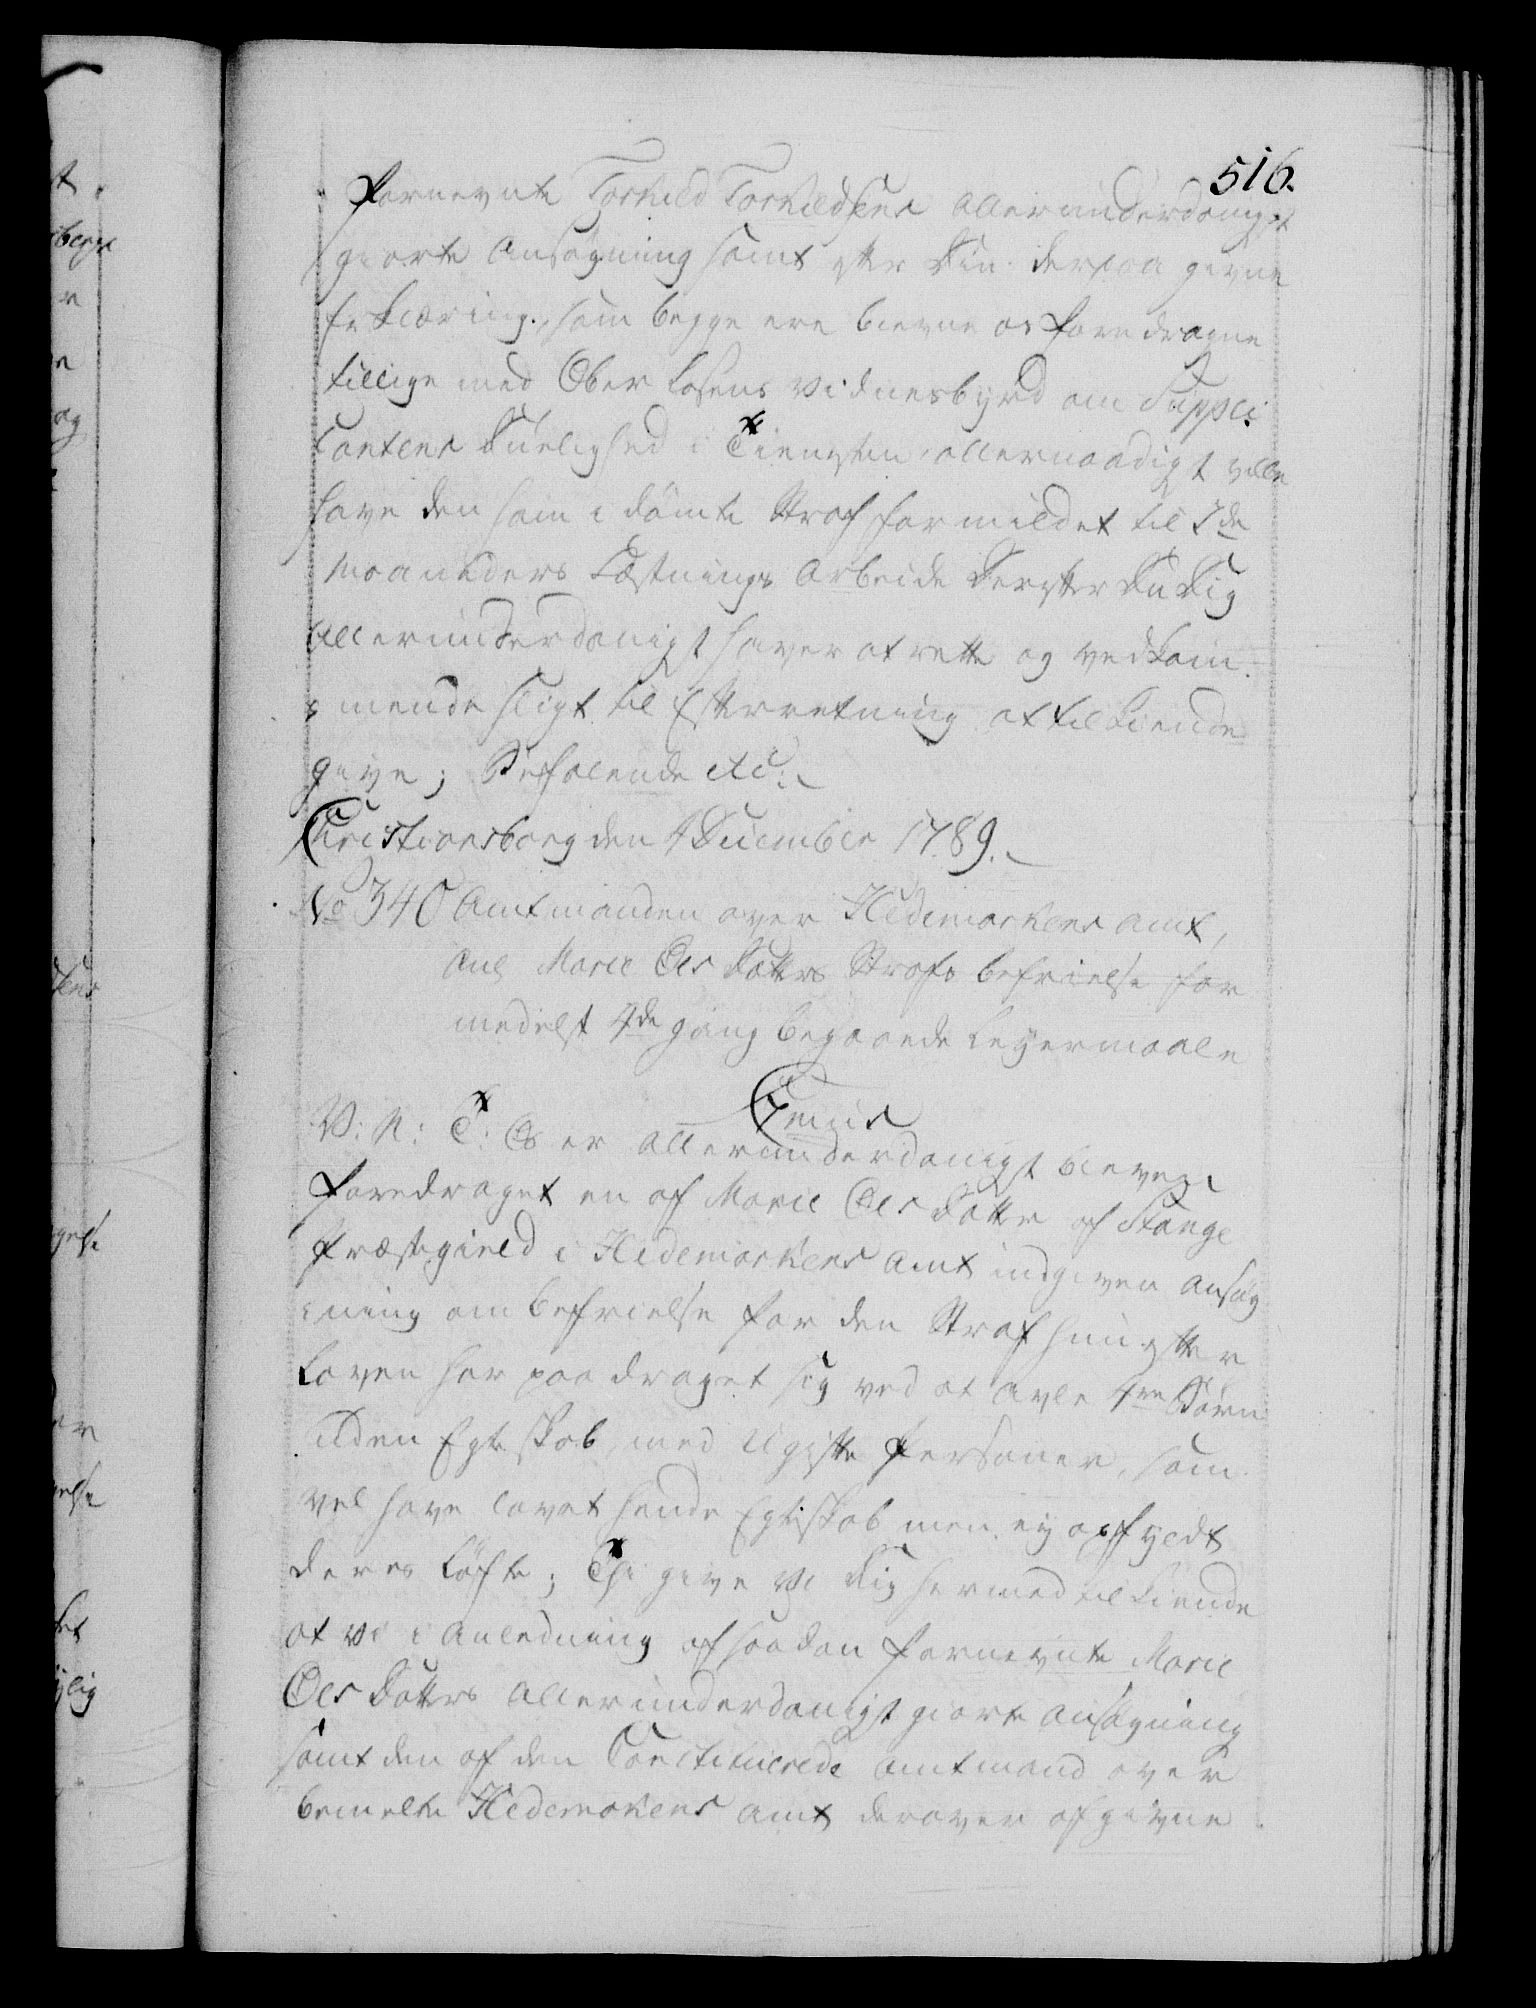 516.
Fornevnte Torkild Torkildsens allerunderdanigst
giorte Ansøgning samt efter Din derpaa givne
Erklæring, som begge ere blevne os foredragne
tillige med Ober Losens Vidnesbyrd om Suppli
cantens Duelighed i Tienesten, allernaadigst ville
have den ham idømte Straf formildet til 2de
Maaneders Fæstnings Arbeide. Derefter Du Dig
allerunderdanigst haver at rette og vedkom
mende sligt til Efterretning at tilkiende
give; Befalende etc:
Christiansborg den 4 December 1789.
No 340 Amtmanden over Hedemarkens Amt,
anl Marie Olsdatters Strafs befrielse for
medelst 4de gang begaaede Leyermaale
C7mus
V: N: T: Os er allerunderdanigst bleven
foredraget en af Marie Olsdatter af Stange
Præstegield i Hedemarkens Amt indgiven Ansøg
ning om befrielse for den Straf hun efter
Loven har paadraget sig ved at avle 4re Børn
uden Egteskab med Ugifte Personer, som
vel have lovet hende Egteskab men ey opfyldt
deres Løfte; Thi give Vi Dig hermed tilkiende
at Vi i Anledning af saadan fornevnte Marie
Olsdatters allerunderdanigst giorte Ansøgning
samt den af den Constituerede Amtmand over
bemelte Hedemarkens Amt derover afgivne